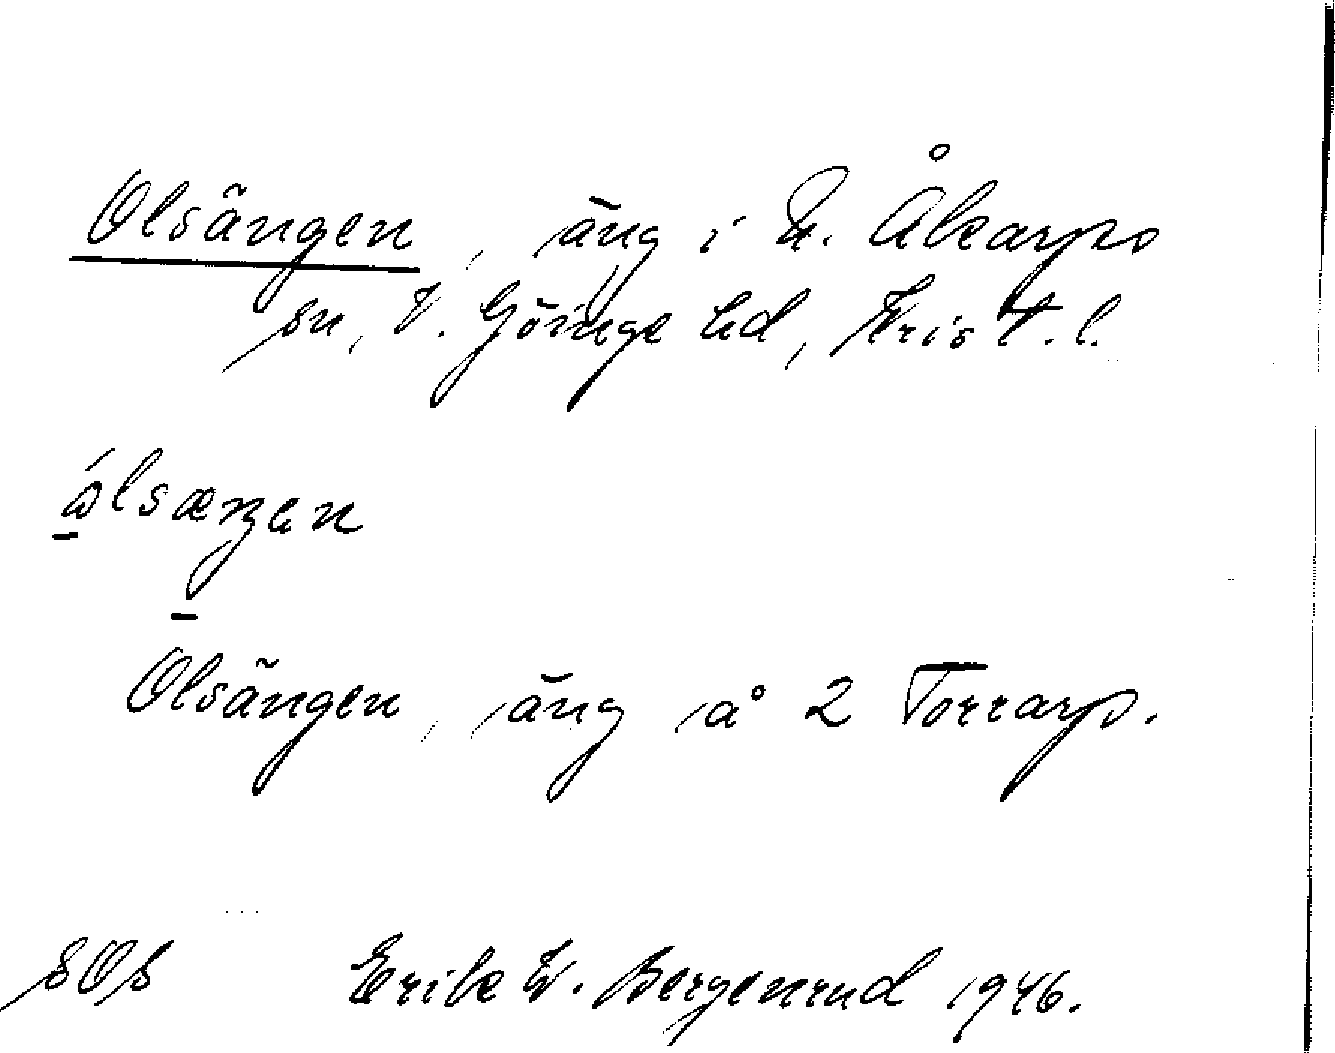 Olsängen, äng i N. Åkarps
sn, V. Göinge hd, Krist. l.
ɷ́lsæŋɛn
Olsängen, äng å 2 Torrarp.
sOs Erik W. Bergenrud 1946.